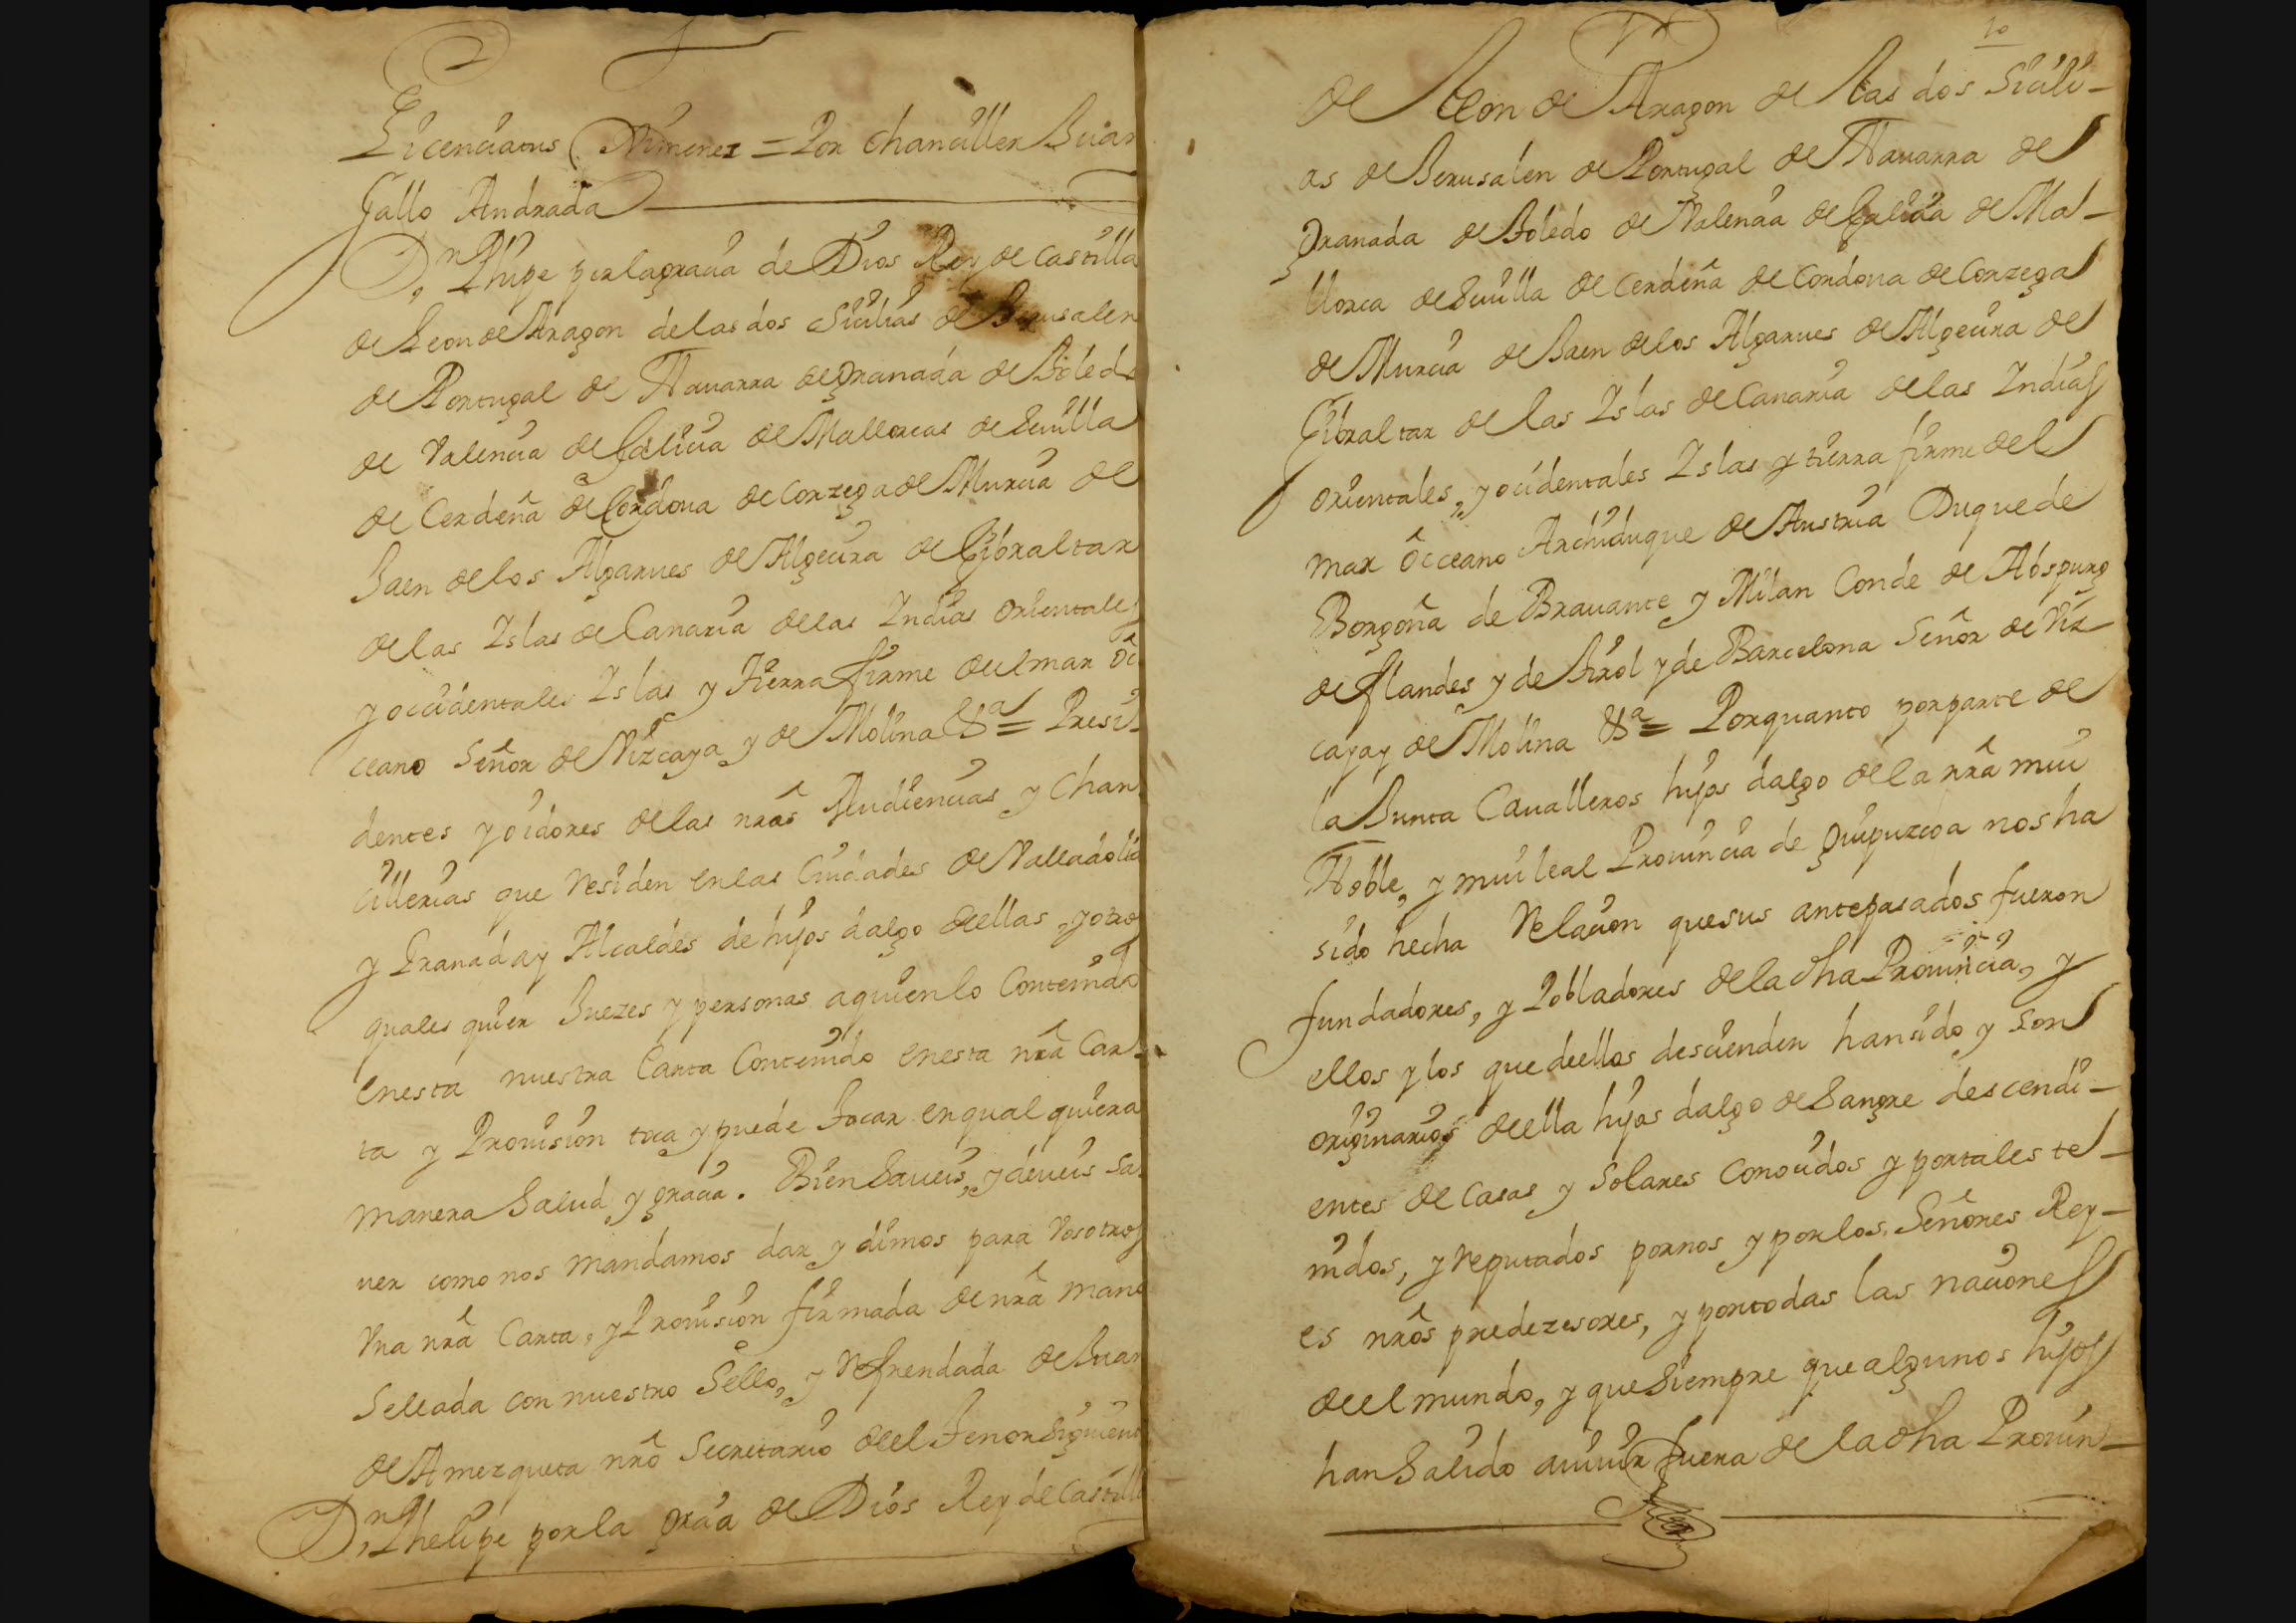 Licenciatus Ximenez = Por Chanciller Juan
Gallo Andrada
Dn. Phipe por la gracia de Dios Rey de Castilla
de Leon de Aragon de las dos Sicilias de Jerusalen
de Portugal de Nauarra de Granada de Toledo
de Valencia de Galicia de Mallorcas de Seuilla
de Cerdeña de Cordoua de Corzega de Murcia de
Jaen de los Algarues de Algecira de Gibraltar
de las Islas de Canaria de las Indias orientales
y occidentales Islas y Tierra firme de el mar oc
ceano Señor de Vizcaya y de Molina &a = Presi-
dentes y oidores de las nras Audiencias y Chan
cillerias que residen en las Ciudades de Valladolid
y Granada y Alcaldes de hijos dalgo de ellas, y otros
quales quier Juezes y personas a quien lo Contenido
en esta nuestra Carta Contenido en esta nra Car-
ta y Prouision toca y puede tocar en qual quiera
manera Salud y gracia. Bien Saueis, y deueis sa-
uer como nos mandamos dar y dimos para Vosotros
Vna nra Carta, y Prouision firmada de nra mano
Sellada con nuestro Sello, y refrendada de Juan
de Amezqueta nro Secretario de el Tenor Siguiente
Dn. Phelipe por la gracia de Dios Rey de Castilla
10
de Leon de Aragon de las dos Sicili-
as de Jerusalen de Portugal de Nauarra de
Granada de Toledo de Valencia de Galicia de Mal-
llorca de Seuilla de Cerdeña de Cordoua de Corzega
de Murcia de Jaen de los Algarues de Algecira de
Gibraltar de las Islas de Canaria de las Indias
orientales, y ocidentales Islas y tierra firme del
mar occeano Archiduque de Austria Duque de
Borgoña de Brauante y Milan Conde de Abspurg
de flandes y de Tirol y de Barcelona Señor de Viz-
caya y de Molina &a = Por quanto por parte de
la Junta Caualleros hijos dalgo de la nra mui
Noble, y mui leal Prouincia de Guipuzcoa nos ha
sido hecha relacion que sus antepasados fueron
fundadores, y Pobladores de la dha Prouincia, y
ellos y los que de ellos descienden han sido y son
originarios de ella hijos dalgo de Sangre descendi-
entes de Casas y Solares Conocidos y por tales te-
nidos, y reputados por nos y por los Señores Rey-
es nros predezesores, y por todas las naciones
de el mundo, y que Siempre que algunos hijos
han Salido a uiuir fuera de la dha Prouin-